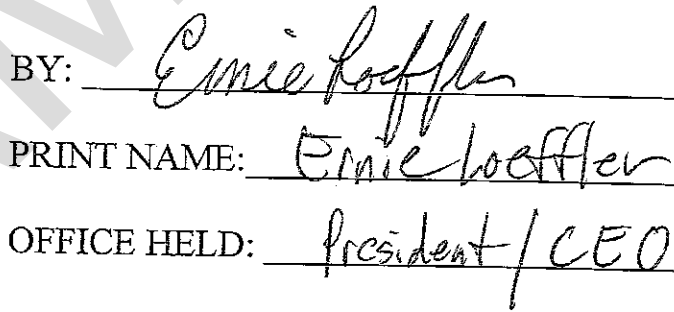 BY: Ernie Loeffler
PRINT NAME: Ernie Loeffler
OFFICE HELD: President/CEO